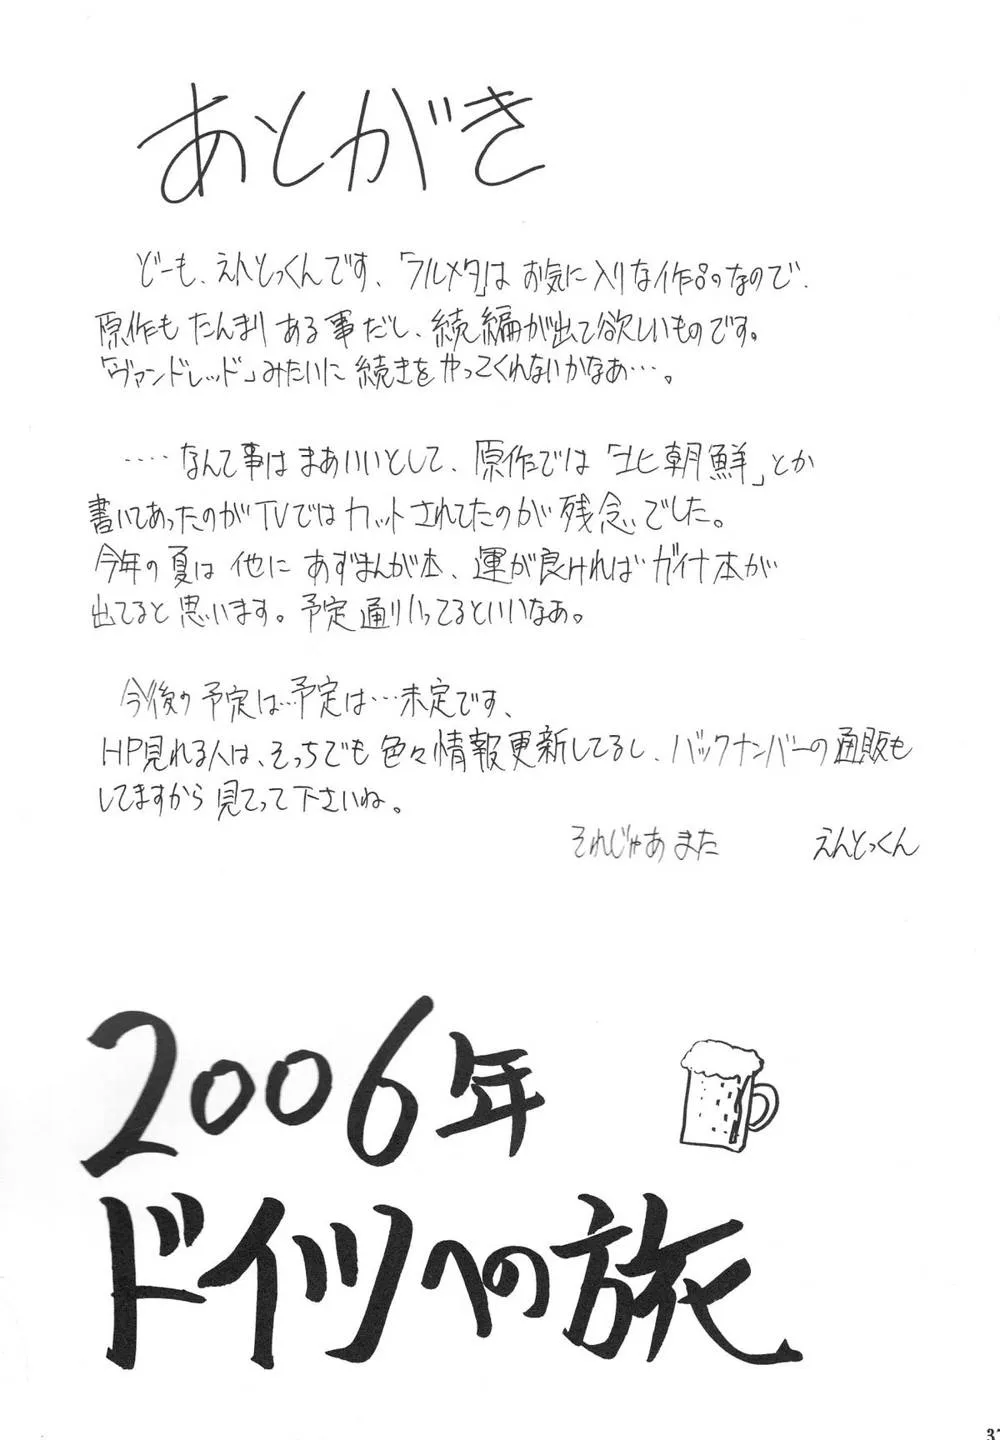 あとがき
どーも、えんとっくんです、「フルメタ」は お気に入りな作品のなので、
原作も たんまり ある事だし、続編が出て欲しいものです。
「ヴァンドレッド」みたいに 続きを やってくれないかなあ…。
‥‥なんて事は まあいいとして、原作では「北朝鮮」とか
書いてあったのが TVでは カットされてたのが 残念でした。
今年の 夏は 他に あずまんが本、運が良ければ ガイナ本が
出てると 思います。予定通りいってるといいなあ。
今後の 予定は…予定は…未定です、
HP見れる人は、そっちでも 色々情報更新してるし、バックナンバーの 通販も
してますから 見てって 下さいね。
それじゃあ また えんとっくん
2006年
ドイツへの旅
37